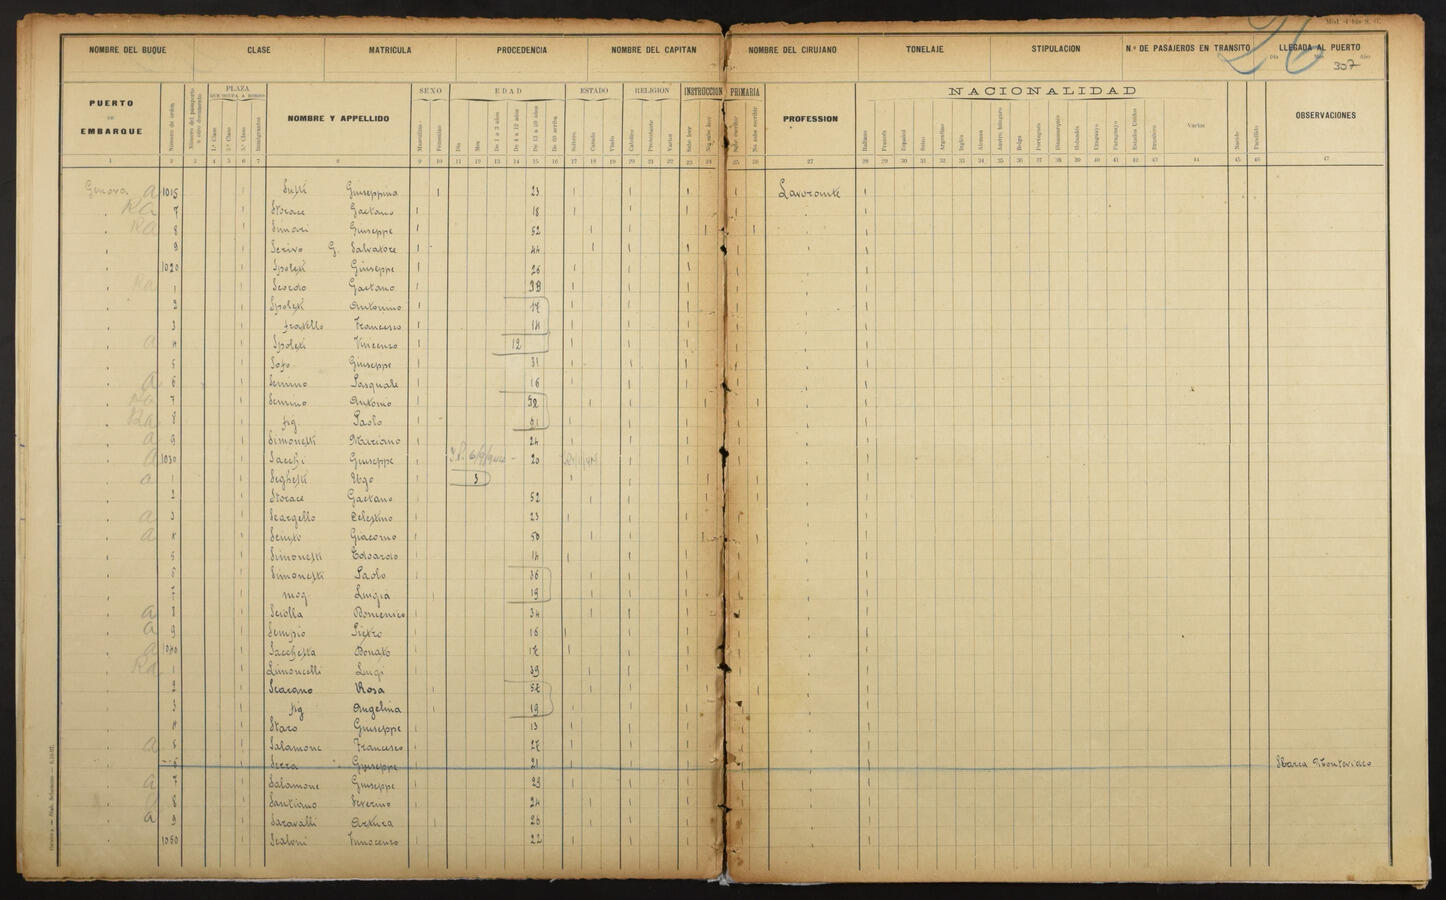 Mod. 4 bis S. 07.
26
NOMBRE DEL BUQUE CLASE MATRICULA PROCEDENCIA NOMBRE DEL CAPITAN NOMBRE DEL CIRUJANO TONELAJE STIPULACION N.º DE PASAJEROS EN TRANSITO LLEGADA AL PUERTO
Dia Mes Año
307
PUERTO DE EMBARQUE
Número de orden
PLAZA QUE OCUPA A BORDO
1.ª Clase 2.ª Clase 3.ª Clase Inmigrantes
NOMBRE Y APPELLIDO
SEXO Masculino Femenino
EDAD Dia Mes De 1 a 3 años De 4 a 12 años De 13 a 59 años De 60 arriba
ESTADO Soltero Casado Viudo
RELIGION Católico Protestante Varios
INSTRUCCION PRIMARIA Sabe leer No sabe leer Sabe escribir No sabe escribir
PROFESSION
NACIONALIDAD
Italiano Francés Español Suizo Argentino Inglés Aleman Austro húngaro Belga Portugues Dinamarqués Holandés Uruguayo Paraguayo Estados Unidos Brasilero Varios
OBSERVACIONES
1 2 3 4 5 6 7 8 9 10 11 12 13 14 15 16 17 18 19 20 21 22 23 24 25 26 27 28 29 30 31 32 33 34 35 36 37 38 39 40 41 42 43 44 45 46 47
Genova a 1015 Giuseppina 23 Lavorante
Ra 7 Storace Gaetano 18
Ra 8 Simari Giuseppe 52
9 Scrivo G. Salvatore 44
1020 Spoleti Giuseppe 26
Ra 1 Scordo Gaetano 38
2 Spoleti Antonino 17
3 fratello Francesco 14
a 4 Spoleti Vincenzo 12
5 Sofo Giuseppe 31
a 6 Semino Pasquale 16
Ra 7 Semino Antonio 52
Ra 8 fig. Paolo 21
a 9 Simonetti Mariano 24
a 1030 Sacchi Giuseppe 20
a 1 Seghetti Ugo 3
2 Storace Gaetano 52
a 3 Scargello Celestino 23
a 4 Giacomo 50
5 Simonetti Edoardo 14
6 Simonetti Paolo 36
7 mog. Luigia 19
a 8 Sciolla Domenico 34
a 9 Sempio Pietro 16
a 1040 Sacchetta Donato 17
Ra 1 Limoncelli Luigi 39
2 Scarano Rosa 57
3 fig Angelina 19
4 Staro Giuseppe 13
a 5 Salamone Francesco 27
6 Serra Giuseppe 21 Sbarca Montevideo
a 7 Salamone Giuseppe 23
8 Santiano Severino 24
a 9 Saravalli Artura 26
1050 Scaloni Innocenzo 22